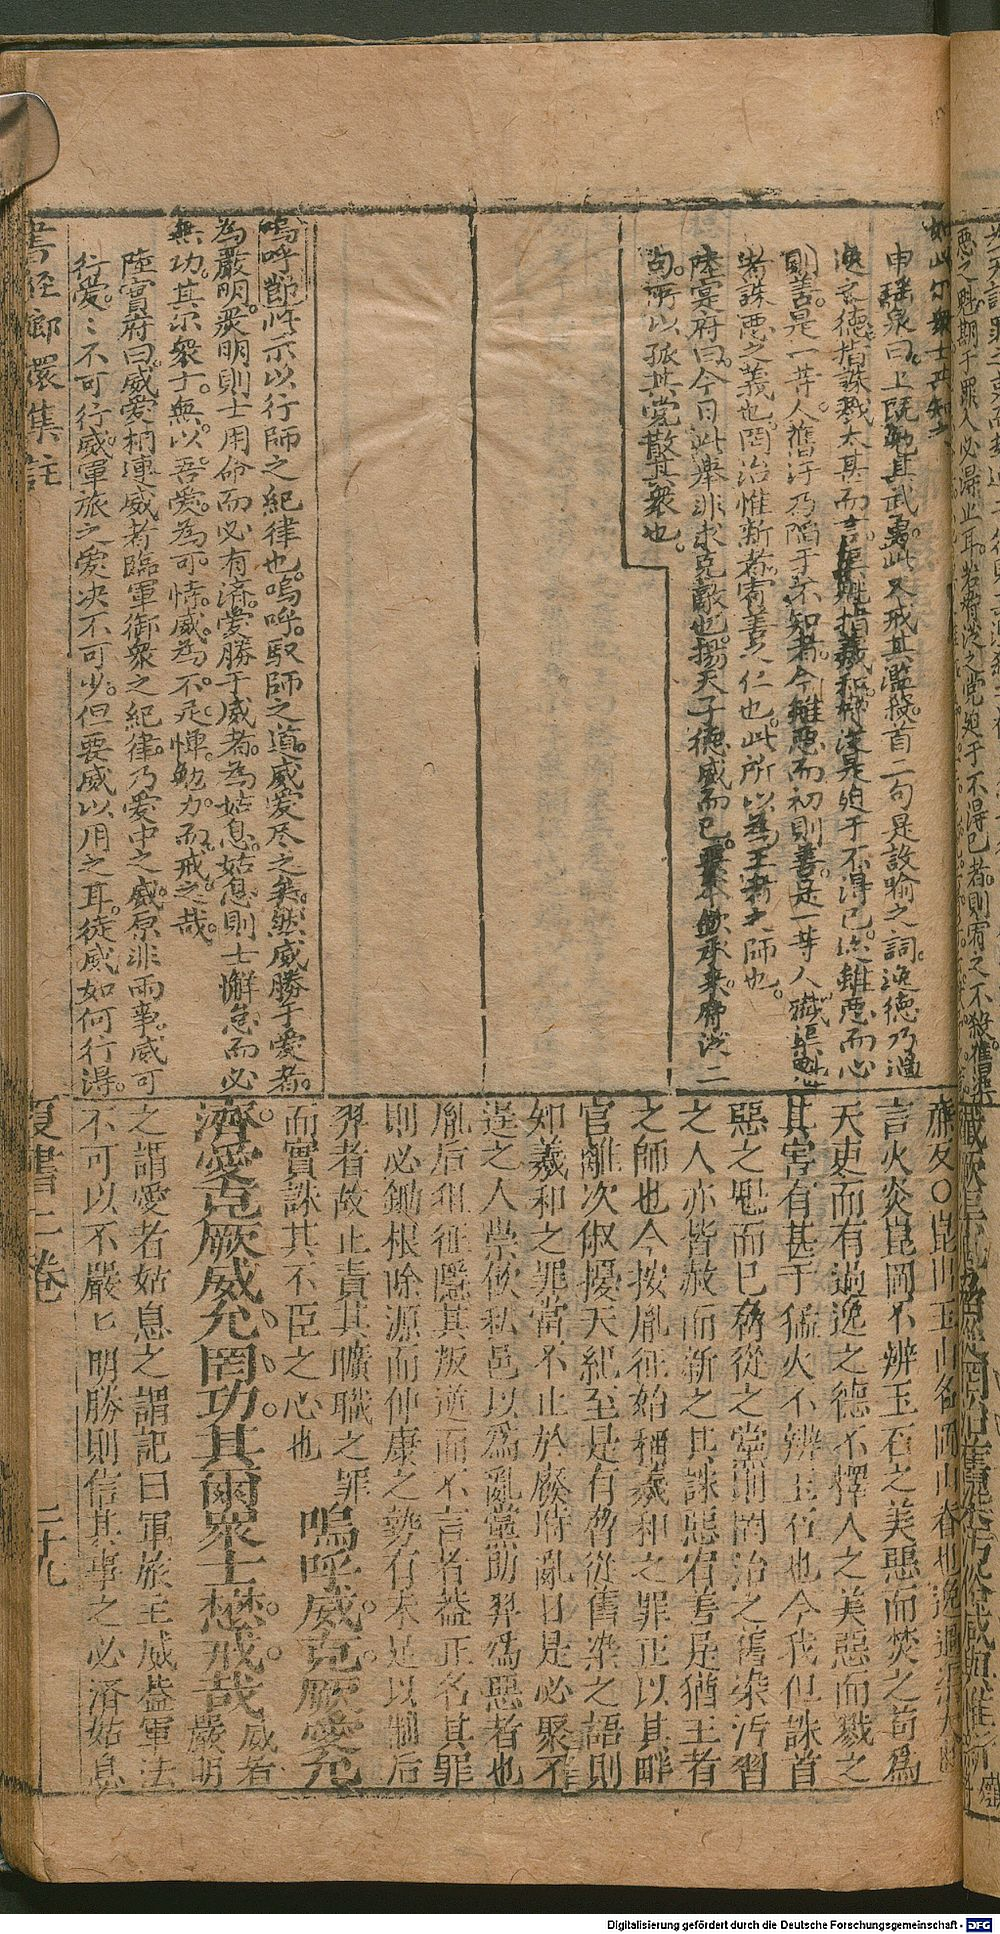 如此尔衆士其知之
申瑤泉曰上既勉其武勇此又戒其濫殺首二句是設喻之詞逸德乃過
逸之德指誅戮太甚而言渠魁指羲和脅從是迫于不得已迹雖惡而心
則善是一等人舊汙乃陷于不知者今雖惡而初則善是一等人殲渠魁
者誅惡之義也罔治惟新者宥善之仁也此所以為王者之師也
陸實府曰今日此舉非求克敵也揚天子德威而已要本欽承來脅從二
句所以孤其党散其衆也
嗚呼節此示以行師之紀律也嗚呼馭師之道威愛尽之矣然威勝于愛者
為嚴明嚴明則士用命而必有済愛勝于威者為姑息姑息則士懈怠而必
無功其尔衆士無以吾愛為可恃威為不足憚勉力而戒之哉
陸實府曰威愛相連威者臨軍御衆之紀律乃愛中之威原非兩事威可
行愛愛不可行威軍旅之愛决不可少但要威以用之耳徒威如何行得
書經嫏嬛集註
言火炎崑岡不辨玉石之美惡而焚之苟爲
天吏而有過逸之德不擇人之美惡而戮之
其害有甚于猛火不辨玉石也今我但誅首
惡之魁而已脅從之黨則罔治之舊染汙習
之人亦皆赦而新之其誅惡宥善是猶王者
之師也今按胤征始稱羲和之罪止以其畔
官離次俶擾天紀至是有脅從舊染之語則
知羲和之罪當不止於廢時亂日是必聚不
逞之人崇飲私邑以爲亂黨助羿爲惡者也
胤后徂征隱其叛逆而不言者葢正名其罪
則必鋤根除源而仲康之勢有未足以制后
羿者故止責其曠職之罪
而實誅其不臣之心也
嗚呼威克厥愛允
濟愛克厥威允罔功其爾衆士懋戒哉
威者
嚴明
之謂愛者姑息之謂記曰軍旅主威葢軍法
不可以不嚴也明勝則信其事之必濟姑息
夏書二卷
二十九
Digitalisierung gefördert durch die Deutsche Forschungsgemeinschaft - DFG